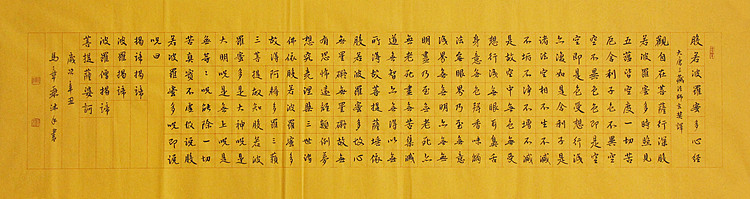 般若波羅蜜多心經
大唐三藏法師玄奘譯
觀自在菩薩行深般
若波羅蜜多時照見
五蘊皆空度一切苦
厄舍利子色不異空
空不異色色即是空
空即是色受想行識
亦復如是舍利子是
諸法空相不生不滅
不垢不淨不增不減
是故空中無色無受
想行識無眼耳鼻舌
身意無色聲香味觸
法無眼界乃至無意
識界無無明亦無無
明盡乃至無老死亦
無老死盡無苦集滅
道無智亦無得以無
所得故菩提薩埵依
般若波羅蜜多故心
無罣礙無罣礙故無
有恐怖遠離顛倒夢
想究竟涅槃三世諸
佛依般若波羅蜜多
故得阿耨多羅三藐
三菩提故知般若波
羅蜜多是大神咒是
大明咒是無上咒是
無等〻咒能除一切
苦真實不虛故說般
若波羅蜜多咒即說
咒曰
揭諦揭諦
波羅揭諦
波羅僧揭諦
菩提薩婆訶
歲次辛丑
沐手書